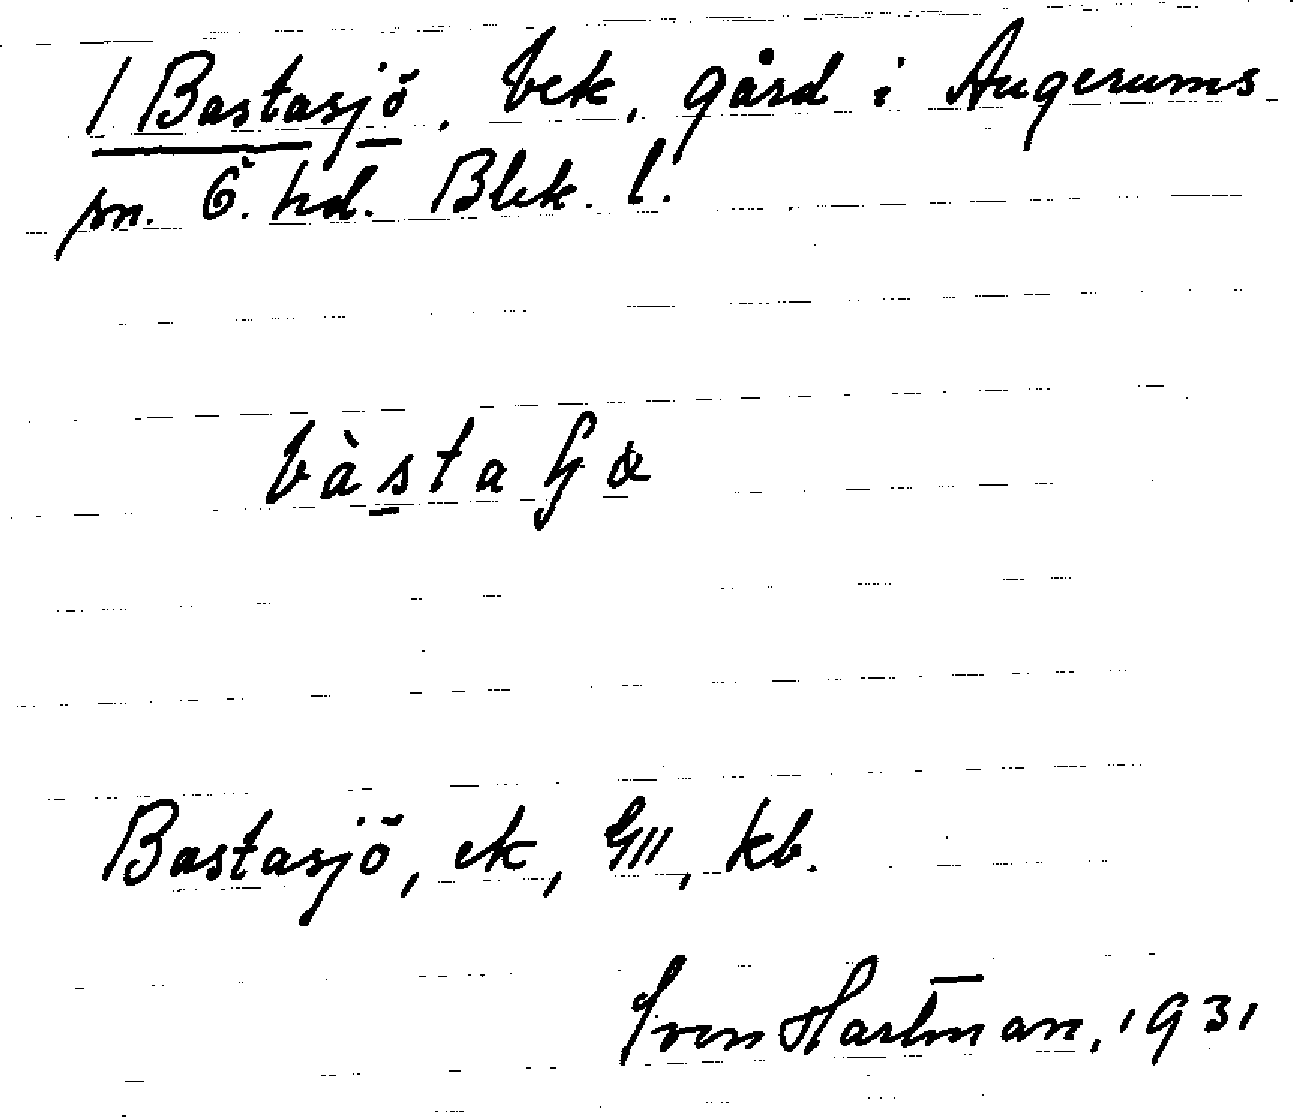 1 Bastasjö. bek. gård i Augerums
sn. Ö. hd. Blek. l.
Bastasjö, ek, GII, kb.
Sven Hartman, 1931